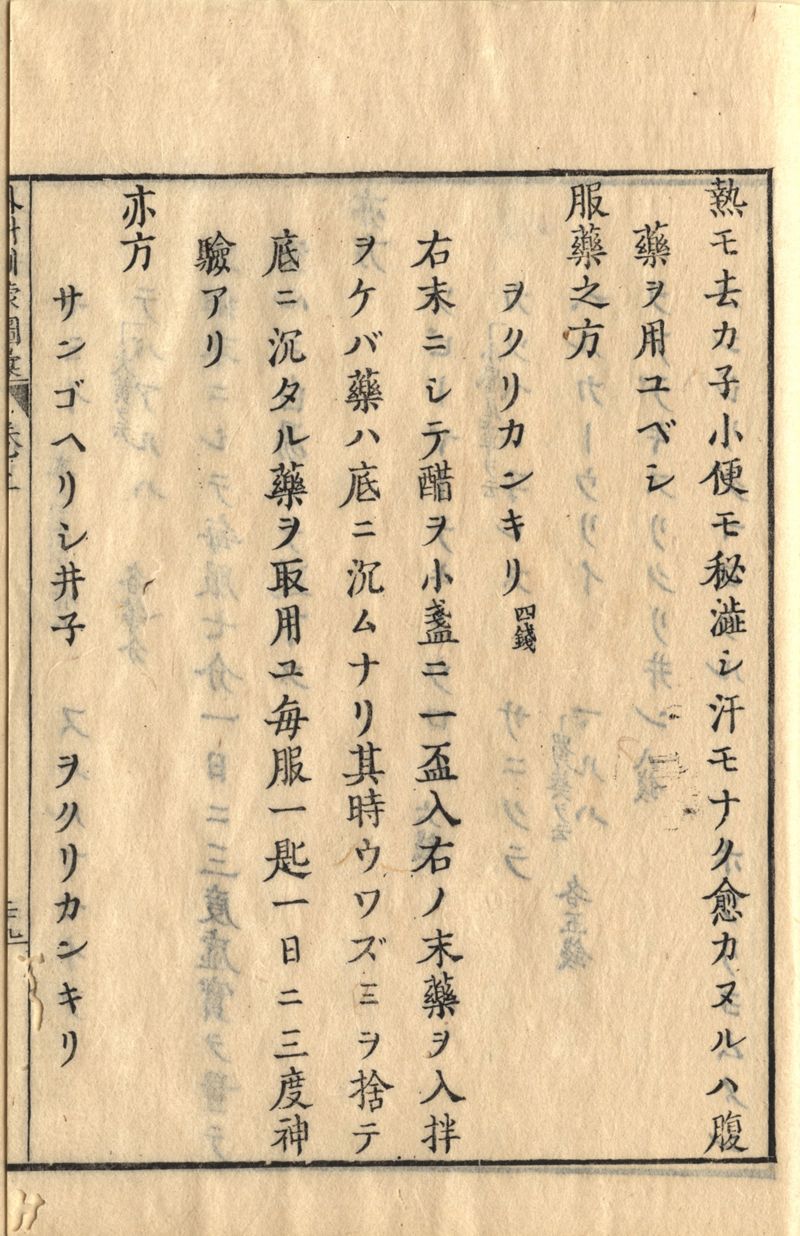 熱モ去カ子小便モ秘澁シ汗モナク愈カヌルハ腹
藥ヲ用ユベシ
服藥之方
ヲクリカンキリ 四錢
右末ニシテ醋ヲ小盞ニ一盃入右ノ末藥ヲ入拌
ヲケバ藥ハ底ニ沉ムナリ其時ウワズミヲ捨テ
底ニ沉タル藥ヲ取用ユ毎服一匙一日ニ三度神
驗アリ
亦方
サンゴヘリシ井子 ヲクリカンキリ